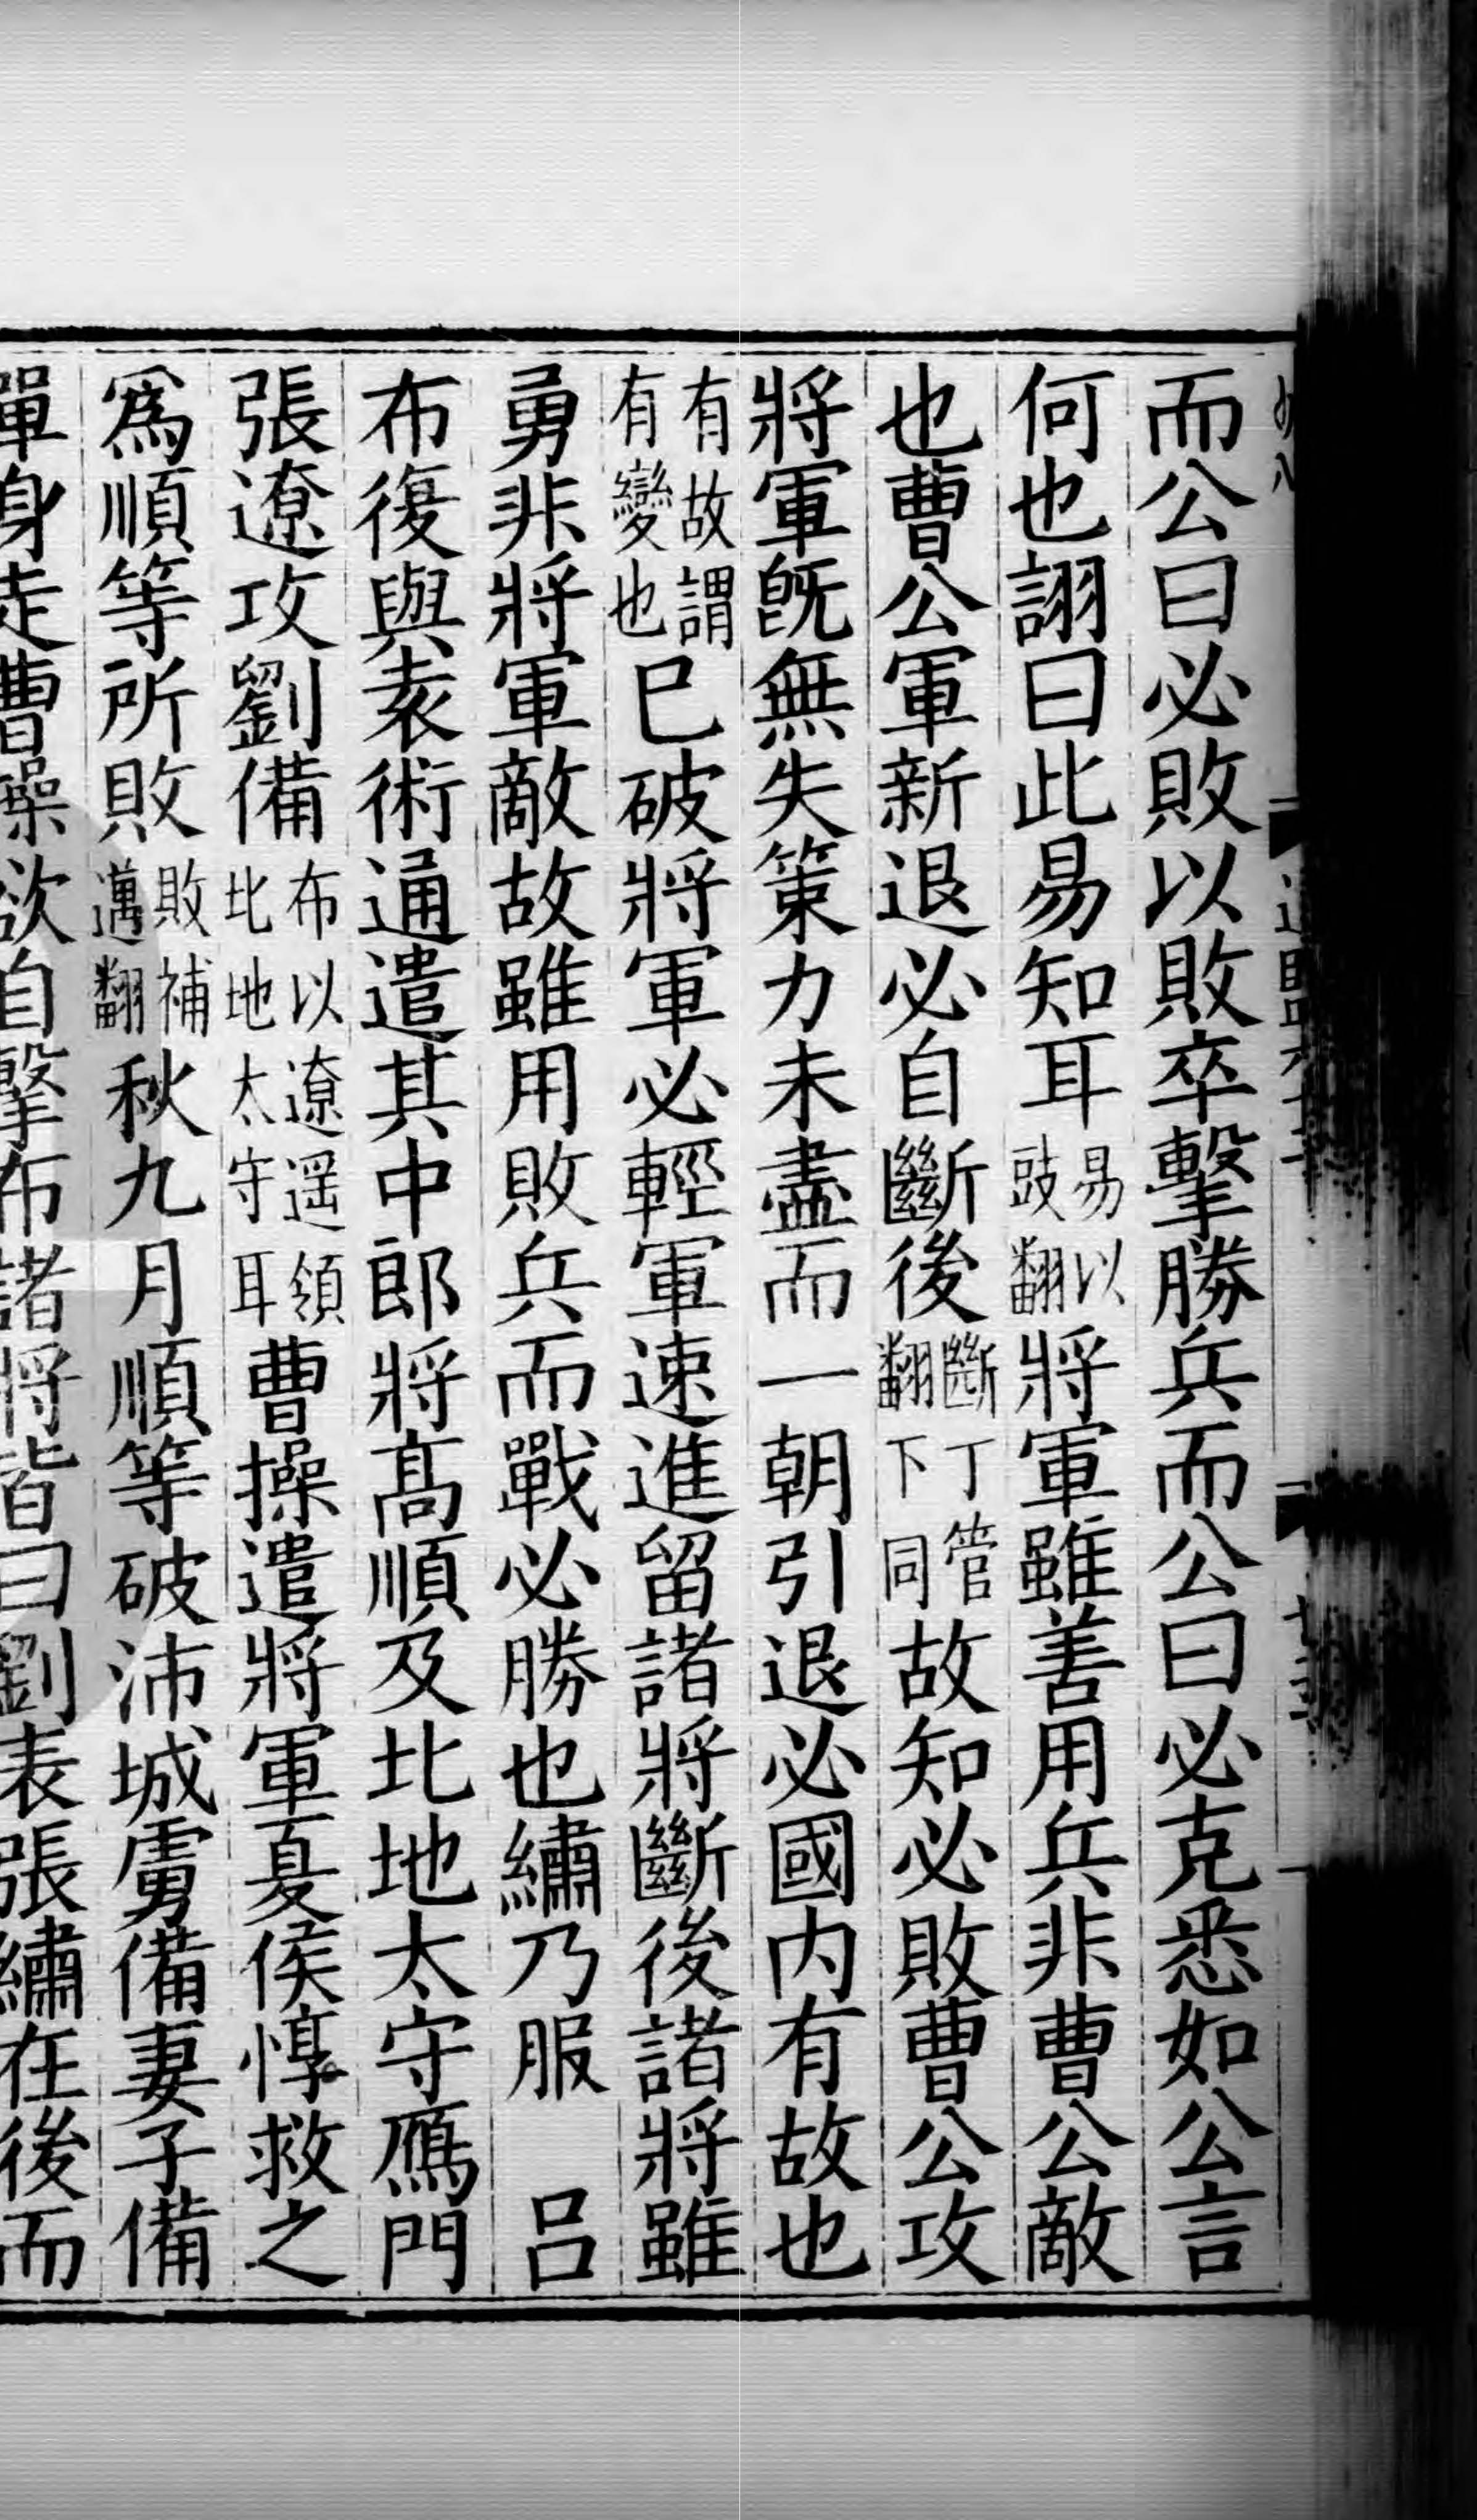 而公曰必敗以敗卒擊勝兵而公曰必克悉如公言
何也詡曰此易知耳易以豉翻將軍雖善用兵非曹公敵
也曹公軍新退必自斷後斷丁管翻下同故知必敗曹公攻
將軍旣無失策力未盡而一朝引退必國内有故也
有故謂有變也巳破將軍必輕軍速進留諸將斷後諸將雖
勇非將軍敵故雖用敗兵而戰必勝也繡乃服　吕
布復與袁術通遣其中郎將髙順及北地太守鴈門
張遼攻劉備布以遼遥領北地太守耳曹操遣將軍夏侯惇救之
爲順等所敗敗補邁翻秋九月順等破沛城虜備妻子備
單身走曹操欲自擊布諸將皆曰劉表張繡在後而